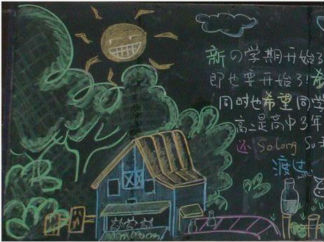 新の学期开始了
即也要开始了!希
同时也希望同学
高三是高中3年
还 So long So
渡过